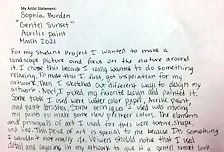 My Artist Statement:
Sophia Burden
"Gentel Sunset"
Acrilic paint
March 2021
For my Student Project I wanted to make a
landscape picture and focus on the nature around
it. I chose this because I really wanted to do something
relaxing. To make this I first, got inspiration for my
artwork. Then I sketched out different ways to design my
artwork. Next, I picked my favorite design and painted it.
Some tools I used were water color paper, Acrilic paint,
and paint brushes. Some techniques I used was mixing
my paint to make some than prefered colors. The elements
and principles of art I used on this were, space, shape,
and line. This piece of art is special to me because its something
I wouldn't normally do. Viewers should notice that I used
detail and layering in my artwork to give it a gentel sunset look